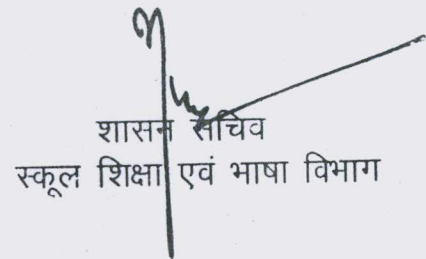 शासन सचिव
स्कूल शिक्षा एवं भाषा विभाग